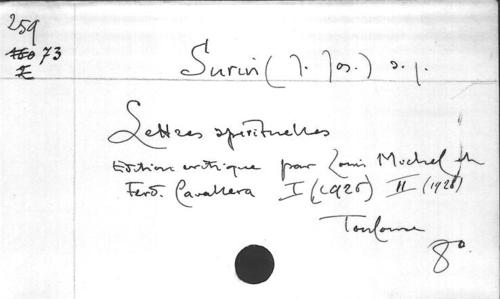 259
73
Surin (J. Jos.) s. j.
Lettres spirituelles
Edition critique par Louis Michel et
Ferd. Cavallera I (1926) II (1928)
Toulouse
8°